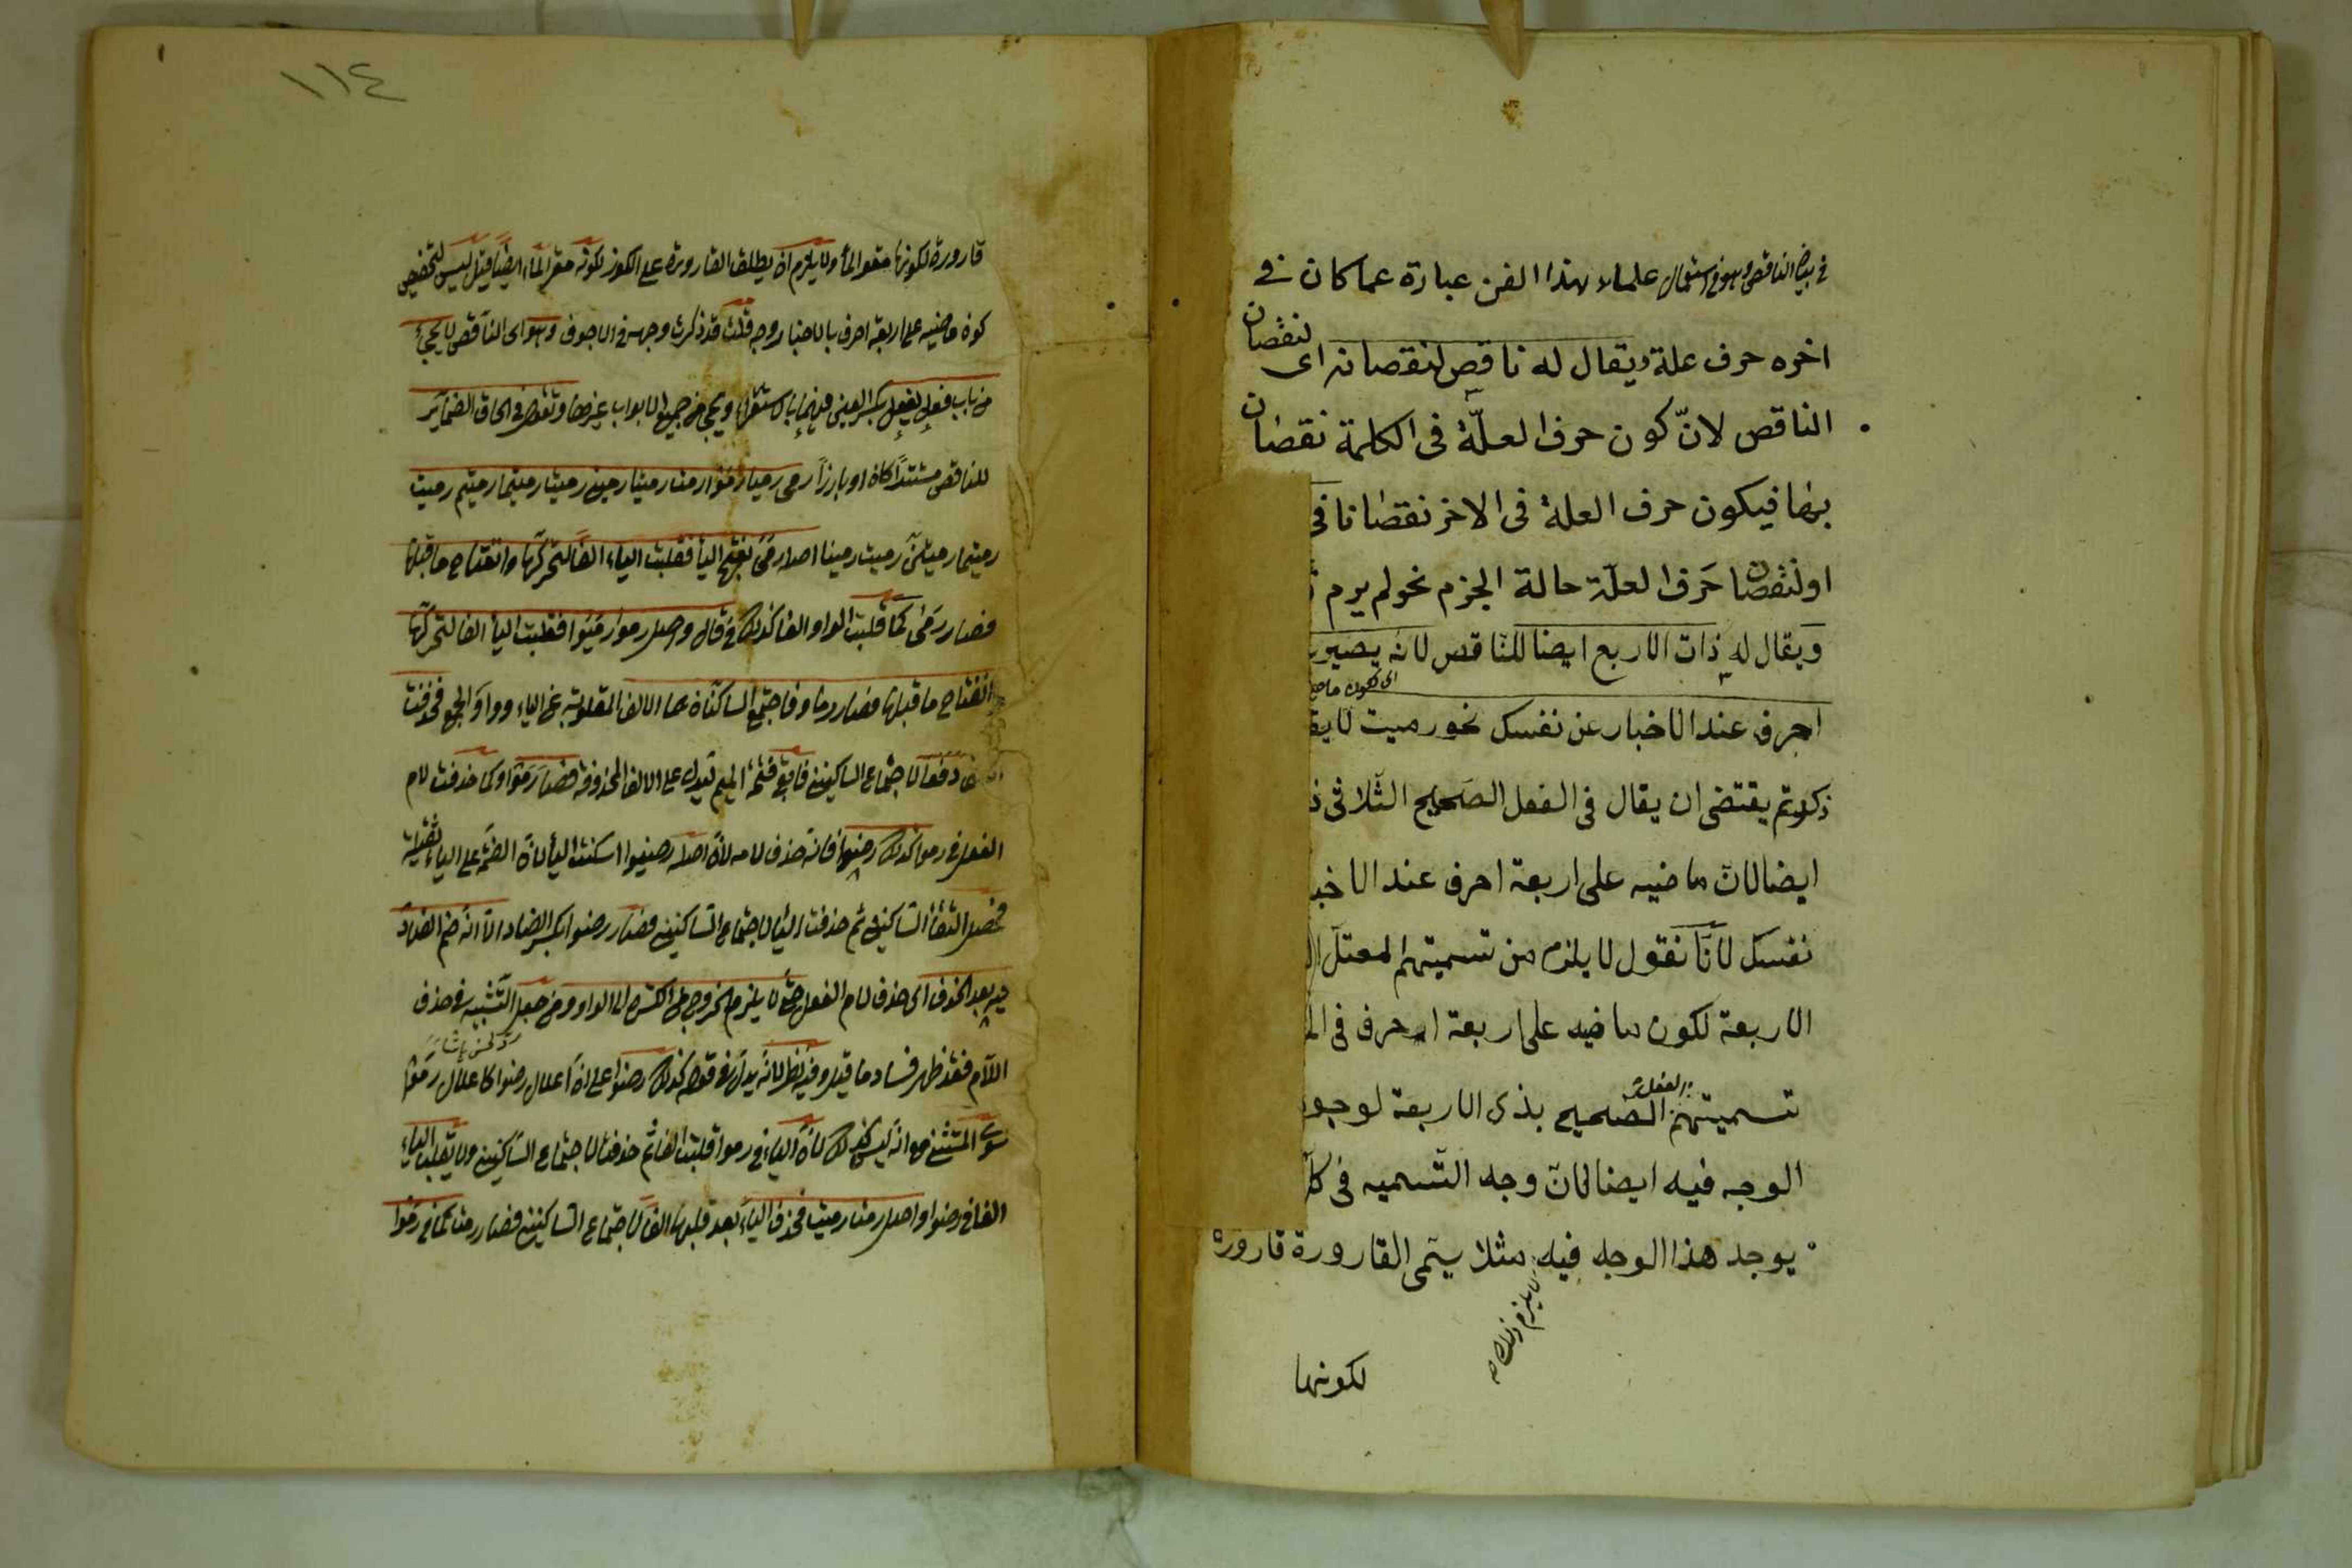 في بيان الناقص وهو في استعمال علماء هذا الفن عبارة عما كان في
اخره حرف علة ويقال له ناقص لنقصانه اى لنقصان
الناقص لانّ كون حرف العلّة فى الكلمة نقصان
بها فيكون حرف العلة فى الاخر نقصانا فى
او لنقصان حرف العلّة حالة الجزم نحو لم يرم
ويقال له ذات الاربع ايضا للناقص لانه يصير
اى لكون ماض
احرف عند الاخبار عن نفسك نحو رميت لا يق
ذكرتم يقتضى ان يقال فى الفعل الصحيح الثلاثى
ايضا لان ماضيه على اربعة احرف عند الاخب
نفسك لانّا نقول لا يلزم من تسميتهم المعتل
الاربعة لكون ماضيه على اربعة احرف فى
الفعل
تسميتهم الصحيح بذى الاربعة لوجو
الوجه فيه ايضا لانّ وجه التسميه فى
يوجد هذا الوجه فيه مثلا يسمى القارورة قارورة
لا يلزم ذلك
لكونها
١١٤
قارورة لكونها مقر الماء ولا يلزم ان يطلق القارورة على الكوز لكونه مقر الماء ايضا قيل ليس لتخصيص
كون ماضيه على اربعة احرف بالاخبار وجه قلت قد ذكرت وجهه فى الاجوف وهو اى الناقص لا يجئ
من باب فعل يفعل بكسر العين فيهما بالاستقراء ويجئ من جميع الابواب غيرها وتقول فى الحاق الضمائر
للناقص مستترا كان او بارزا رمى رميا رموا رمت رمتا رمين رميت رميتما رميتم رميت
رميتما رميتنّ رميت رمينا اصل رمى رمى بفتح الياء فقلبت الياء الفا لتحركها وانفتاح ما قبلها
فصار رمى كما قلبت الواو الفا كذلك فى قال واصل رموا رميوا فقلبت الياء الفا لتحركها
انفتاح ما قبلها فصار رماوا فاجتمع الساكنان هما الالف المقلوبة عن الياء وواو الجمع فحذفت
دفعا لاجتماع الساكنين فابقى فتحة الميم لتدل على الالف المحذوفة فصار رموا وكما حذفت لام
الفعل فى رموا كذلك رضوا فانه حذف لامه لانّ اصله رضيوا اسكنت الياء لانّ الضمة على الياء ثقيلة
فحصل التقاء الساكنين ثم حذفت الياء لاجتماع الساكنين فصار رضوا بكسر الضاد الا انه ضم الضاد
فيه بعد الحذف اى حذف لام الفعل حتى لا يلزم الخروج من الكسرة الى الواو ومن جعل التشبيه فى حذف
ردّ لحسن پاشا
اللام فقد ظهر فساد ما قيل وفيه نظر لانه يدل قوله كذلك رضوا على ان اعلال رضوا كاعلال رموا
سوى المستثنى مع انه ليس كذلك لانّ الياء فى رموا قلبت الفا ثم حذفت لاجتماع الساكنين ولا يقلب الياء
الفا فى رضوا واصل رمت رميت فحذف الياء بعد قلبها الفا لاجتماع الساكنين فصار رمت كما فى رموا